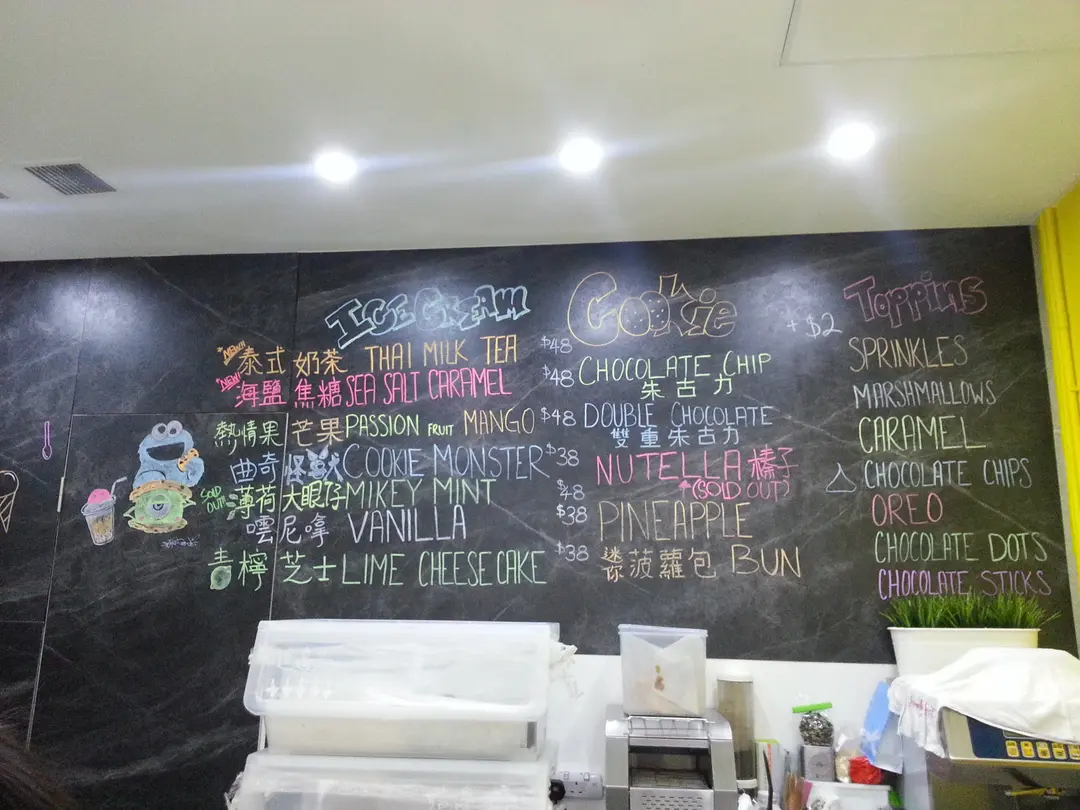 ICE CREAM
NEW!! 泰式 奶茶 THAI MILK TEA $48
NEW! 海鹽 焦糖 SEA SALT CARAMEL $48
熱情果 芒果 PASSION FRUIT MANGO $48
曲奇 怪獸 COOKIE MONSTER $38
SOLD OUT! 薄荷 大眼仔 MIKEY MINT $48
嚐尼嗱 VANILLA $38
青檸 芝士 LIME CHEESE CAKE $38
Cookie
CHOCOLATE CHIP
朱古力
DOUBLE CHOCOLATE
雙重朱古力
NUTELLA 榛子
(SOLD OUT)
PINEAPPLE
迷你 菠蘿包 BUN
+$2 Toppins
SPRINKLES
MARSHMALLOWS
CARAMEL
CHOCOLATE CHIPS
OREO
CHOCOLATE DOTS
CHOCOLATE STICKS